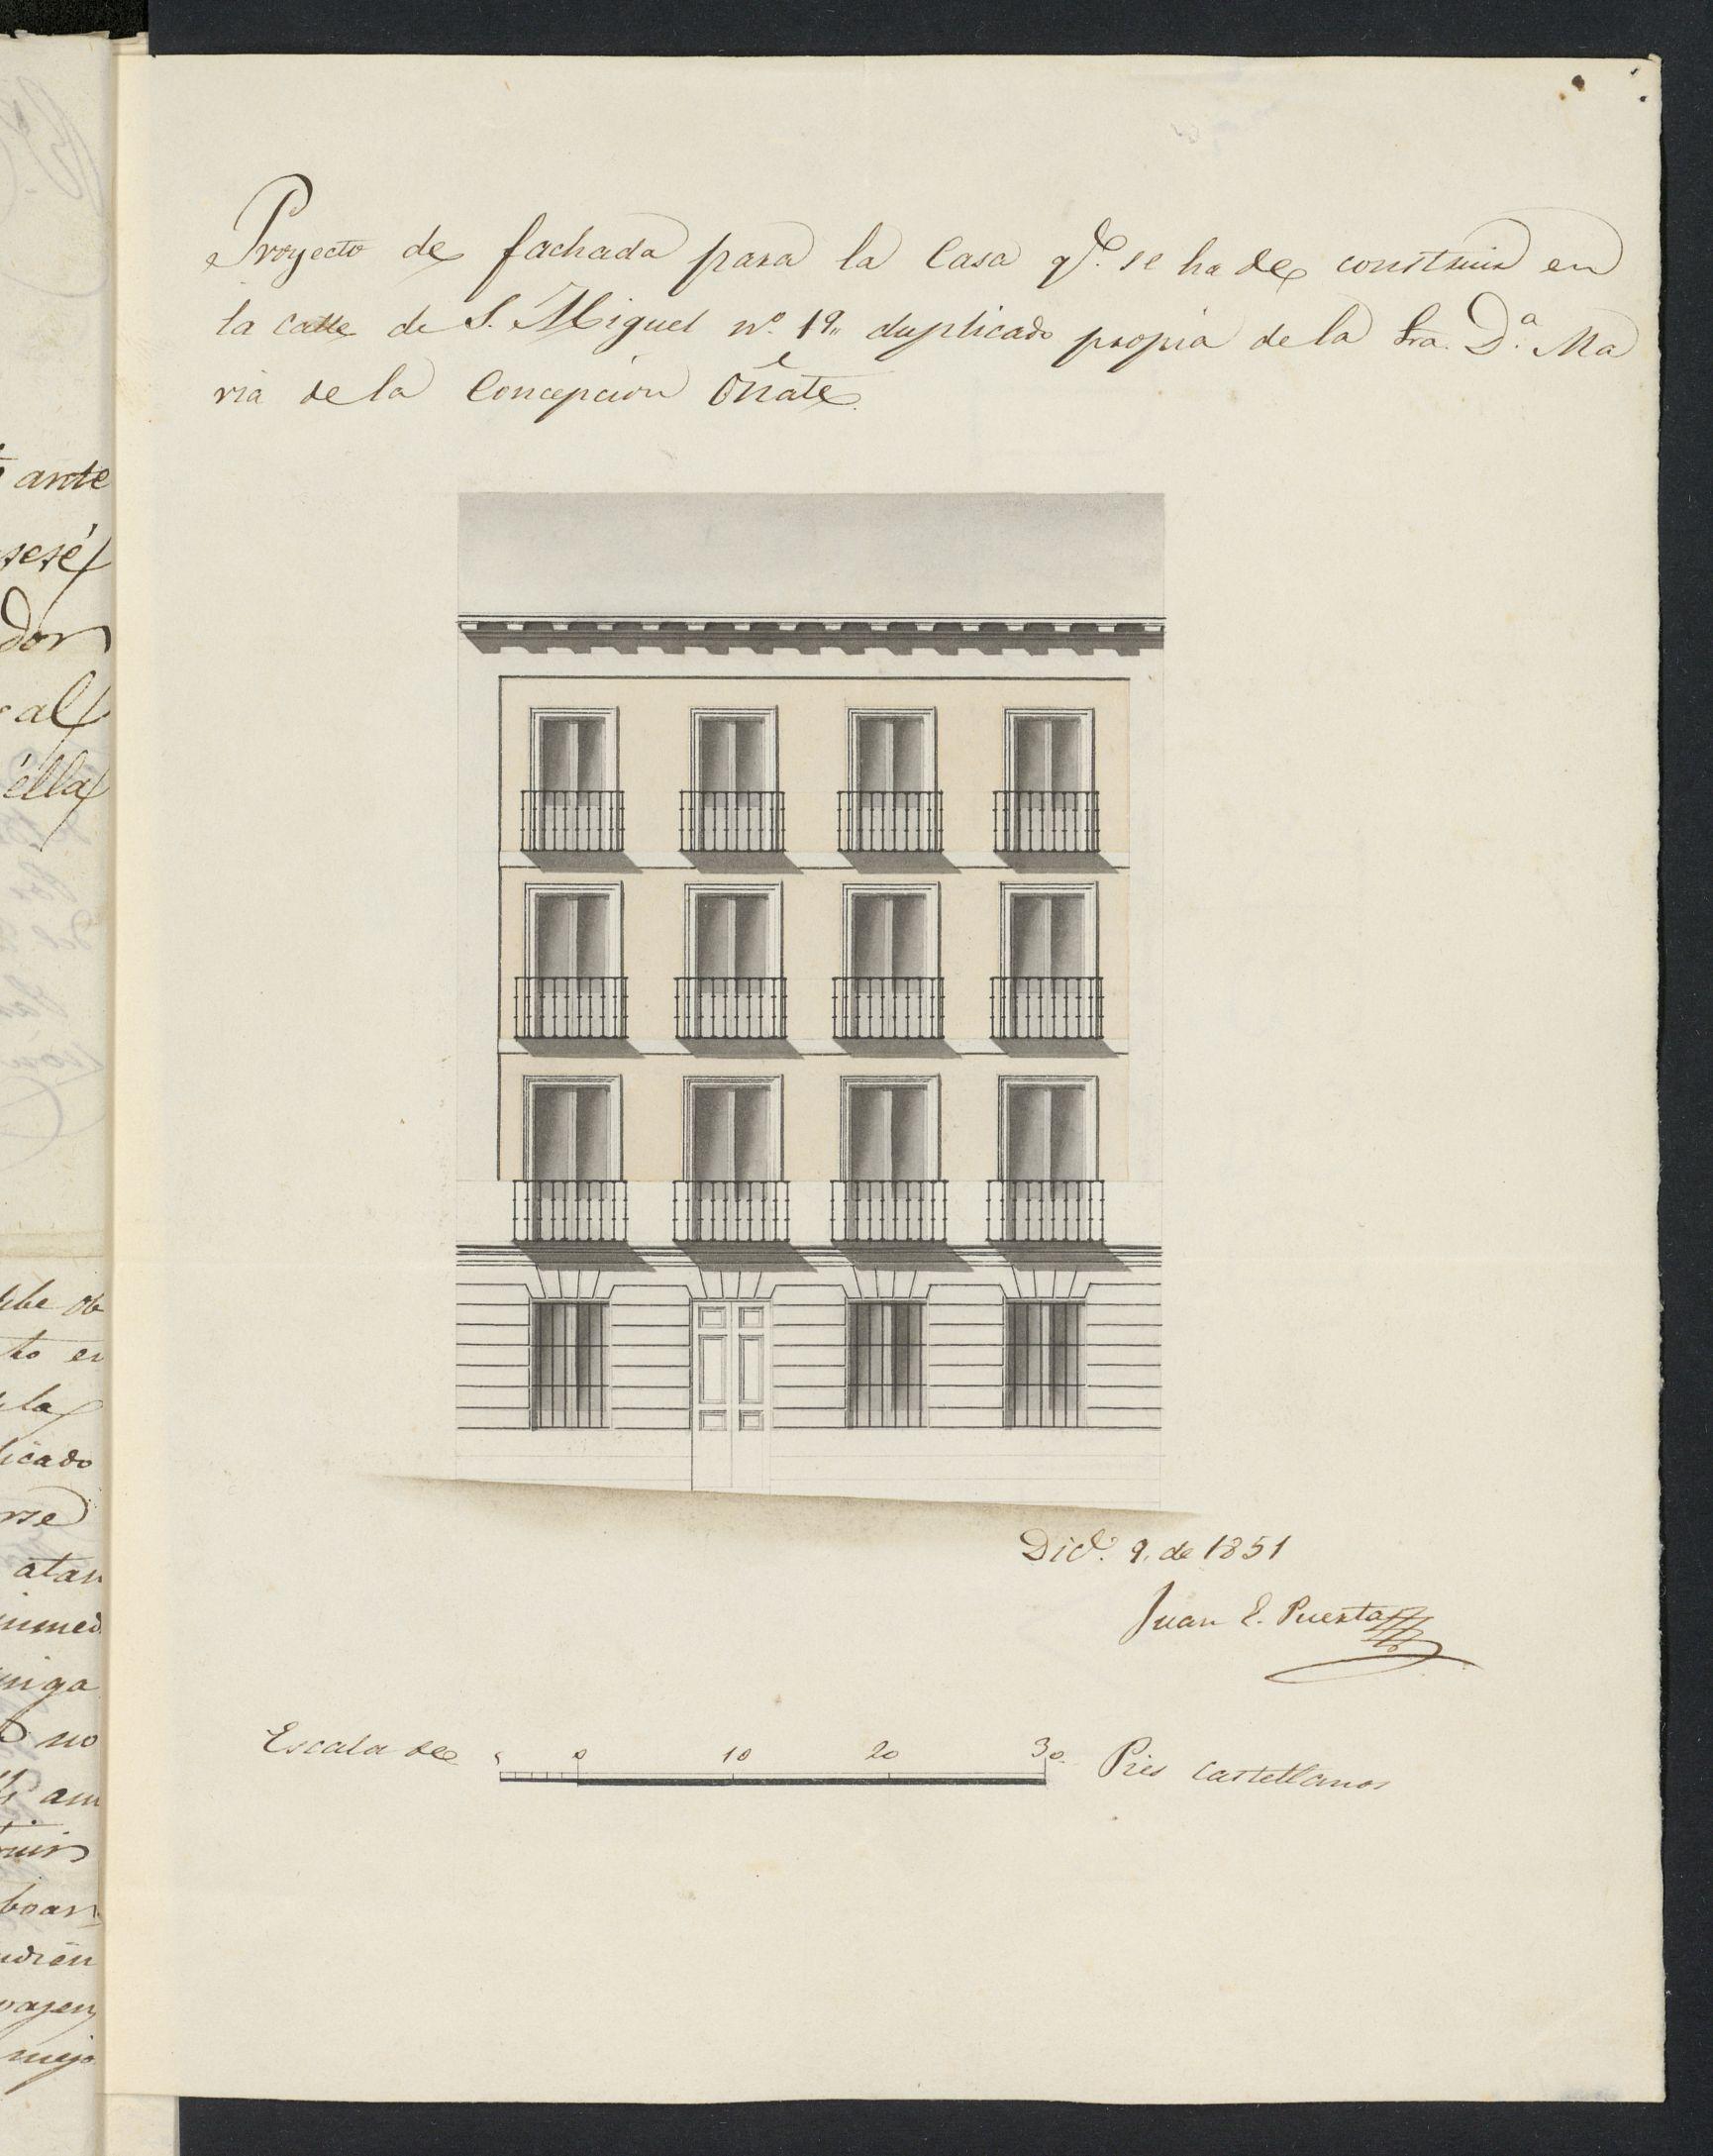 Proyecto de fachada para la Casa qe. se ha de construir en
la calle de S. Miguel no. 19,, duplicado propia de la Sra. Da. Ma
ria de la Concepcion Oñate.
Dice. 9. de 1851
Juan E. Puerta
Escala de 0 10 20 30 Pies castellanos
ante
dor
al
élla
ebe ob
to en
la
licado
rse
atan
inmed
niga
no
am
truir
boar
ndien
vajen
mejo